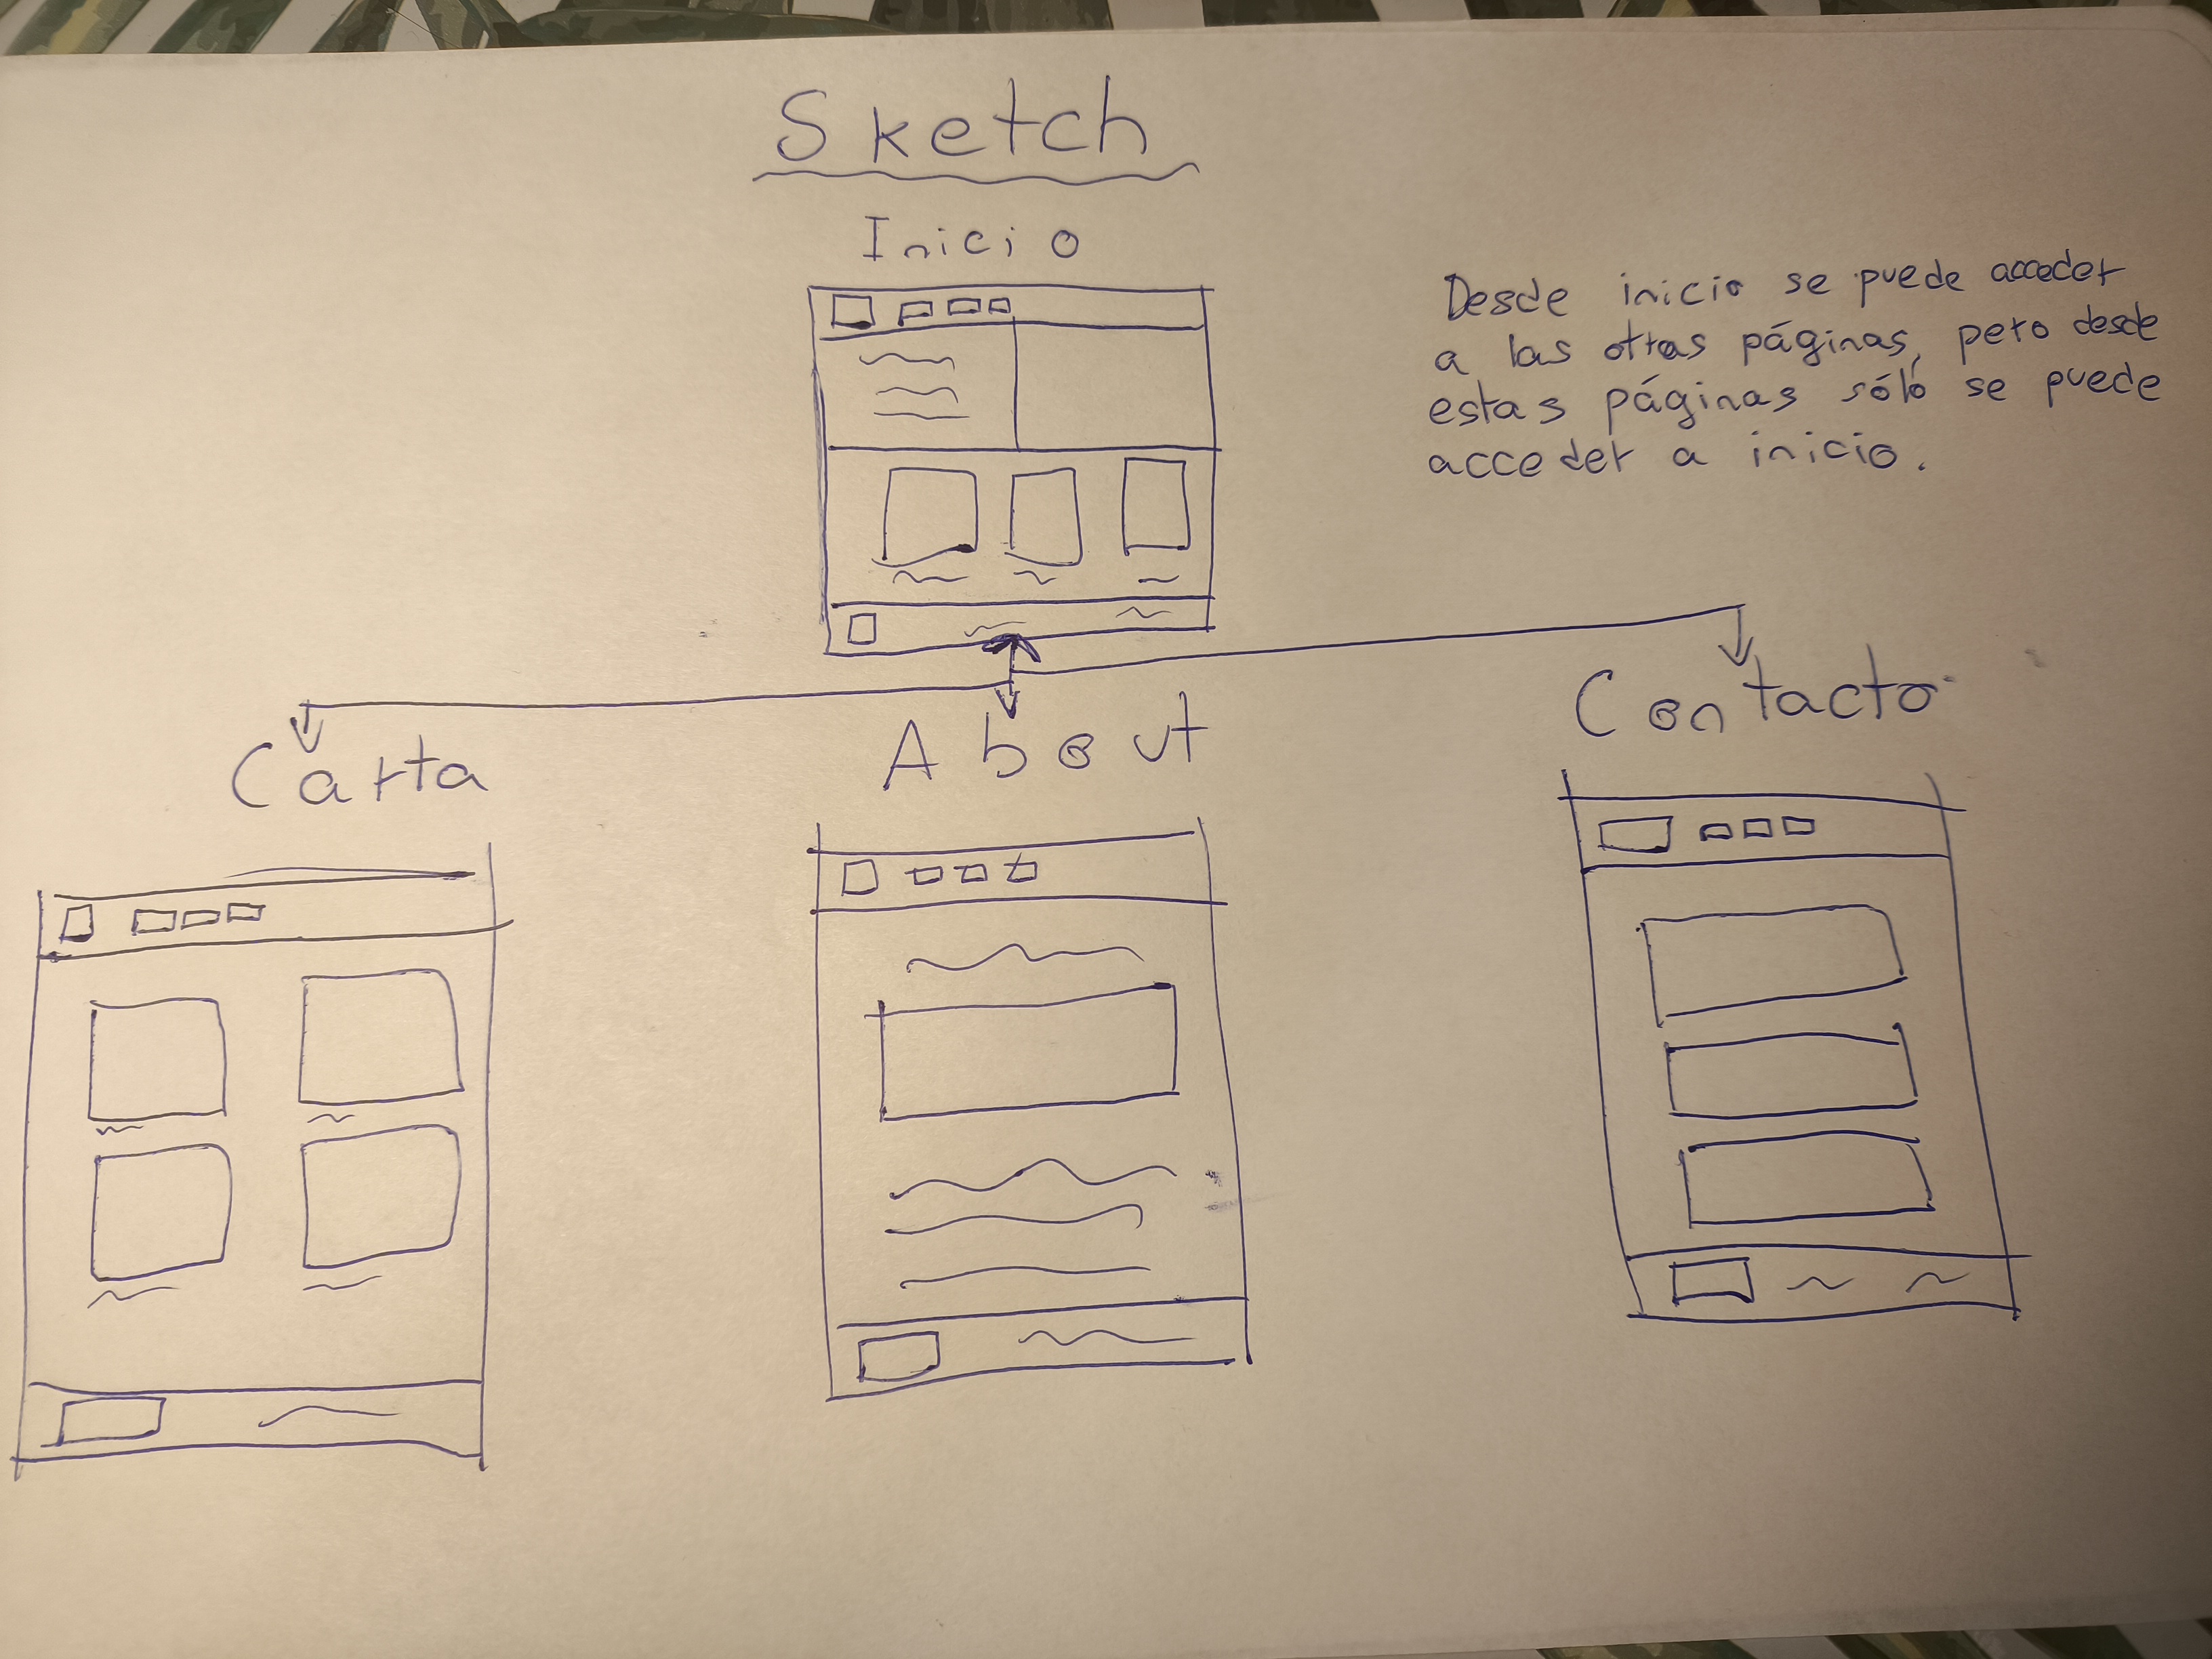 Sketch
Inicio
Desde inicio se puede acceder
a las otras páginas, pero desde
estas páginas sólo se puede
acceder a inicio.
Carta
About
Contacto